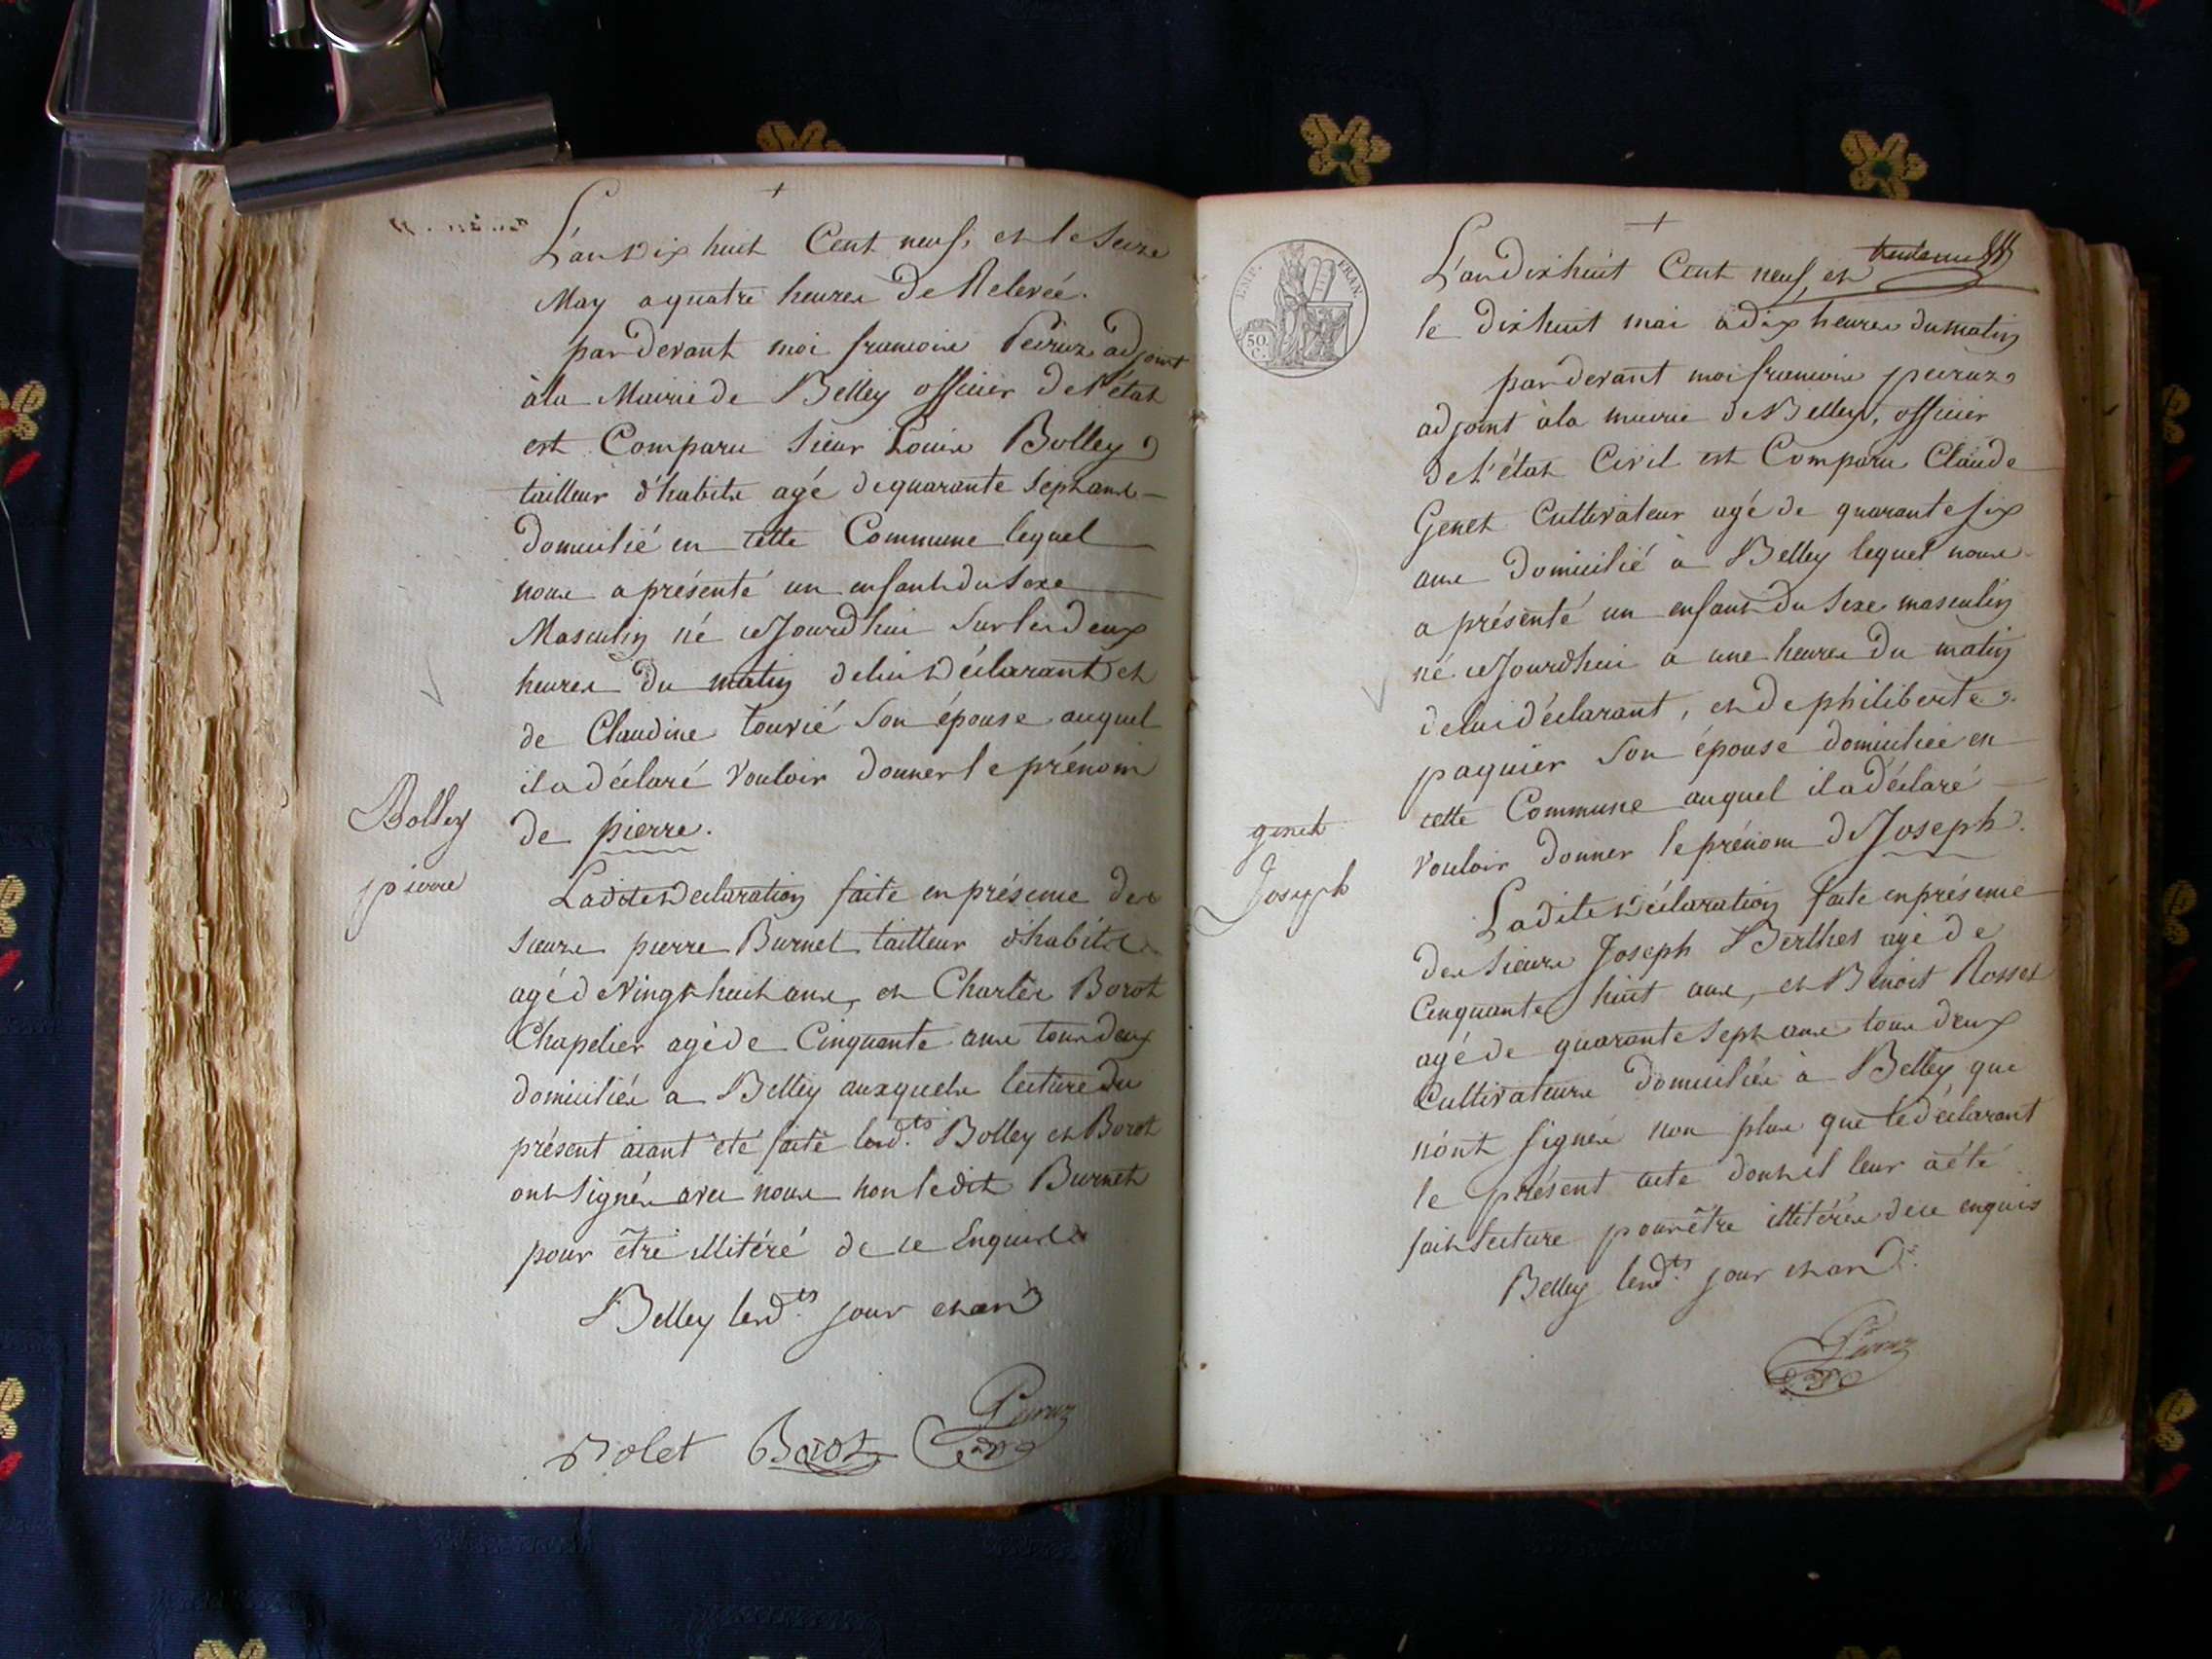 L'an Dix huit Cent neuf, et le Seize
May a quatre heures De Relevée.
par devant moi francois Peiruz adjoint
à la Mairie de Belley officier de l'état
est Comparu Sieur Louis Bolley
tailleur d'habits agé de quarante Sept ans
domicilié en cette Commune lequel
nous a présenté un enfant du Sexe
Masculin né cejourd'hui Sur les deux
heures du matin de lui Déclarant et
de Claudine tourié Son épouse auquel
il a déclaré Vouloir donner le prénom
de pierre.
Bolley
pierre
La dite Declaration faite en présence des
Sieurs pierre Burnet tailleur d'habits
agé de Vingt huit ans, et Charles Borot
Chapelier agé de Cinquante ans tous deux
domiciliés a Belley auxquels lecture du
présent aiant été faite lesd.ts Bolley et Borot
ont Signés avec nous non le dit Burnet
pour être illitéré de ce Enquis
Belley lesd.ts jour et an
Bolet Borot Peiruz
EMP. FRAN.
50. C.
L'an Dix huit Cent neuf, et
le dix huit mai à dix heures du matin
par devant moi francois peiruz
adjoint à la mairie de Belley, officier
de l'état Civil est Comparu Claude
Genet Cultivateur agé de quarante Six
ans Domicilié à Belley lequel nous
a présenté un enfant du Sexe masculin
né cejourd'hui a une heures du matin
de lui déclarant, et de philiberte
paquier Son épouse domiciliée en
cette Commune auquel il a déclaré
Vouloir donner le prénom de Joseph.
genet
Joseph
La dite Déclaration faite en présence
des Sieurs Joseph Berthet agé de
Cinquante huit ans, et Benoit Rosset
agé de quarante Sept ans tous deux
Cultivateurs domiciliés à Belley, que
n'ont Signés non plus que le déclarant
le présent acte dont il leur a été
fait lecture pour être illitérés de ce enquis
Belley lesd.ts jour et an
Peiruz